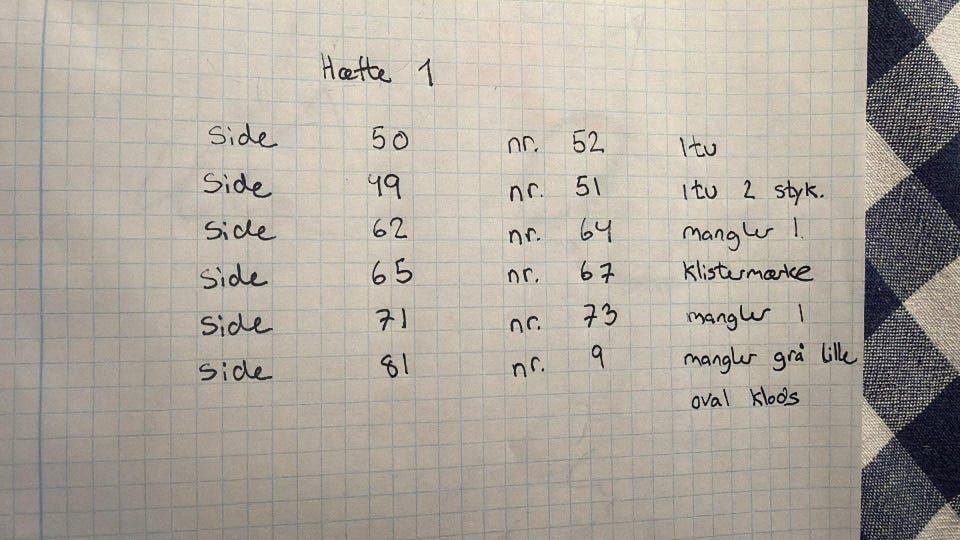 Hæfte 1
Side 50 nr. 52 Itu
Side 49 nr. 51 itu 2 styk.
Side 62 nr. 64 mangler 1.
Side 65 nr. 67 Klistermærke
Side 71 nr. 73 mangler 1
Side 81 nr. 9 mangler grå lille
oval klods